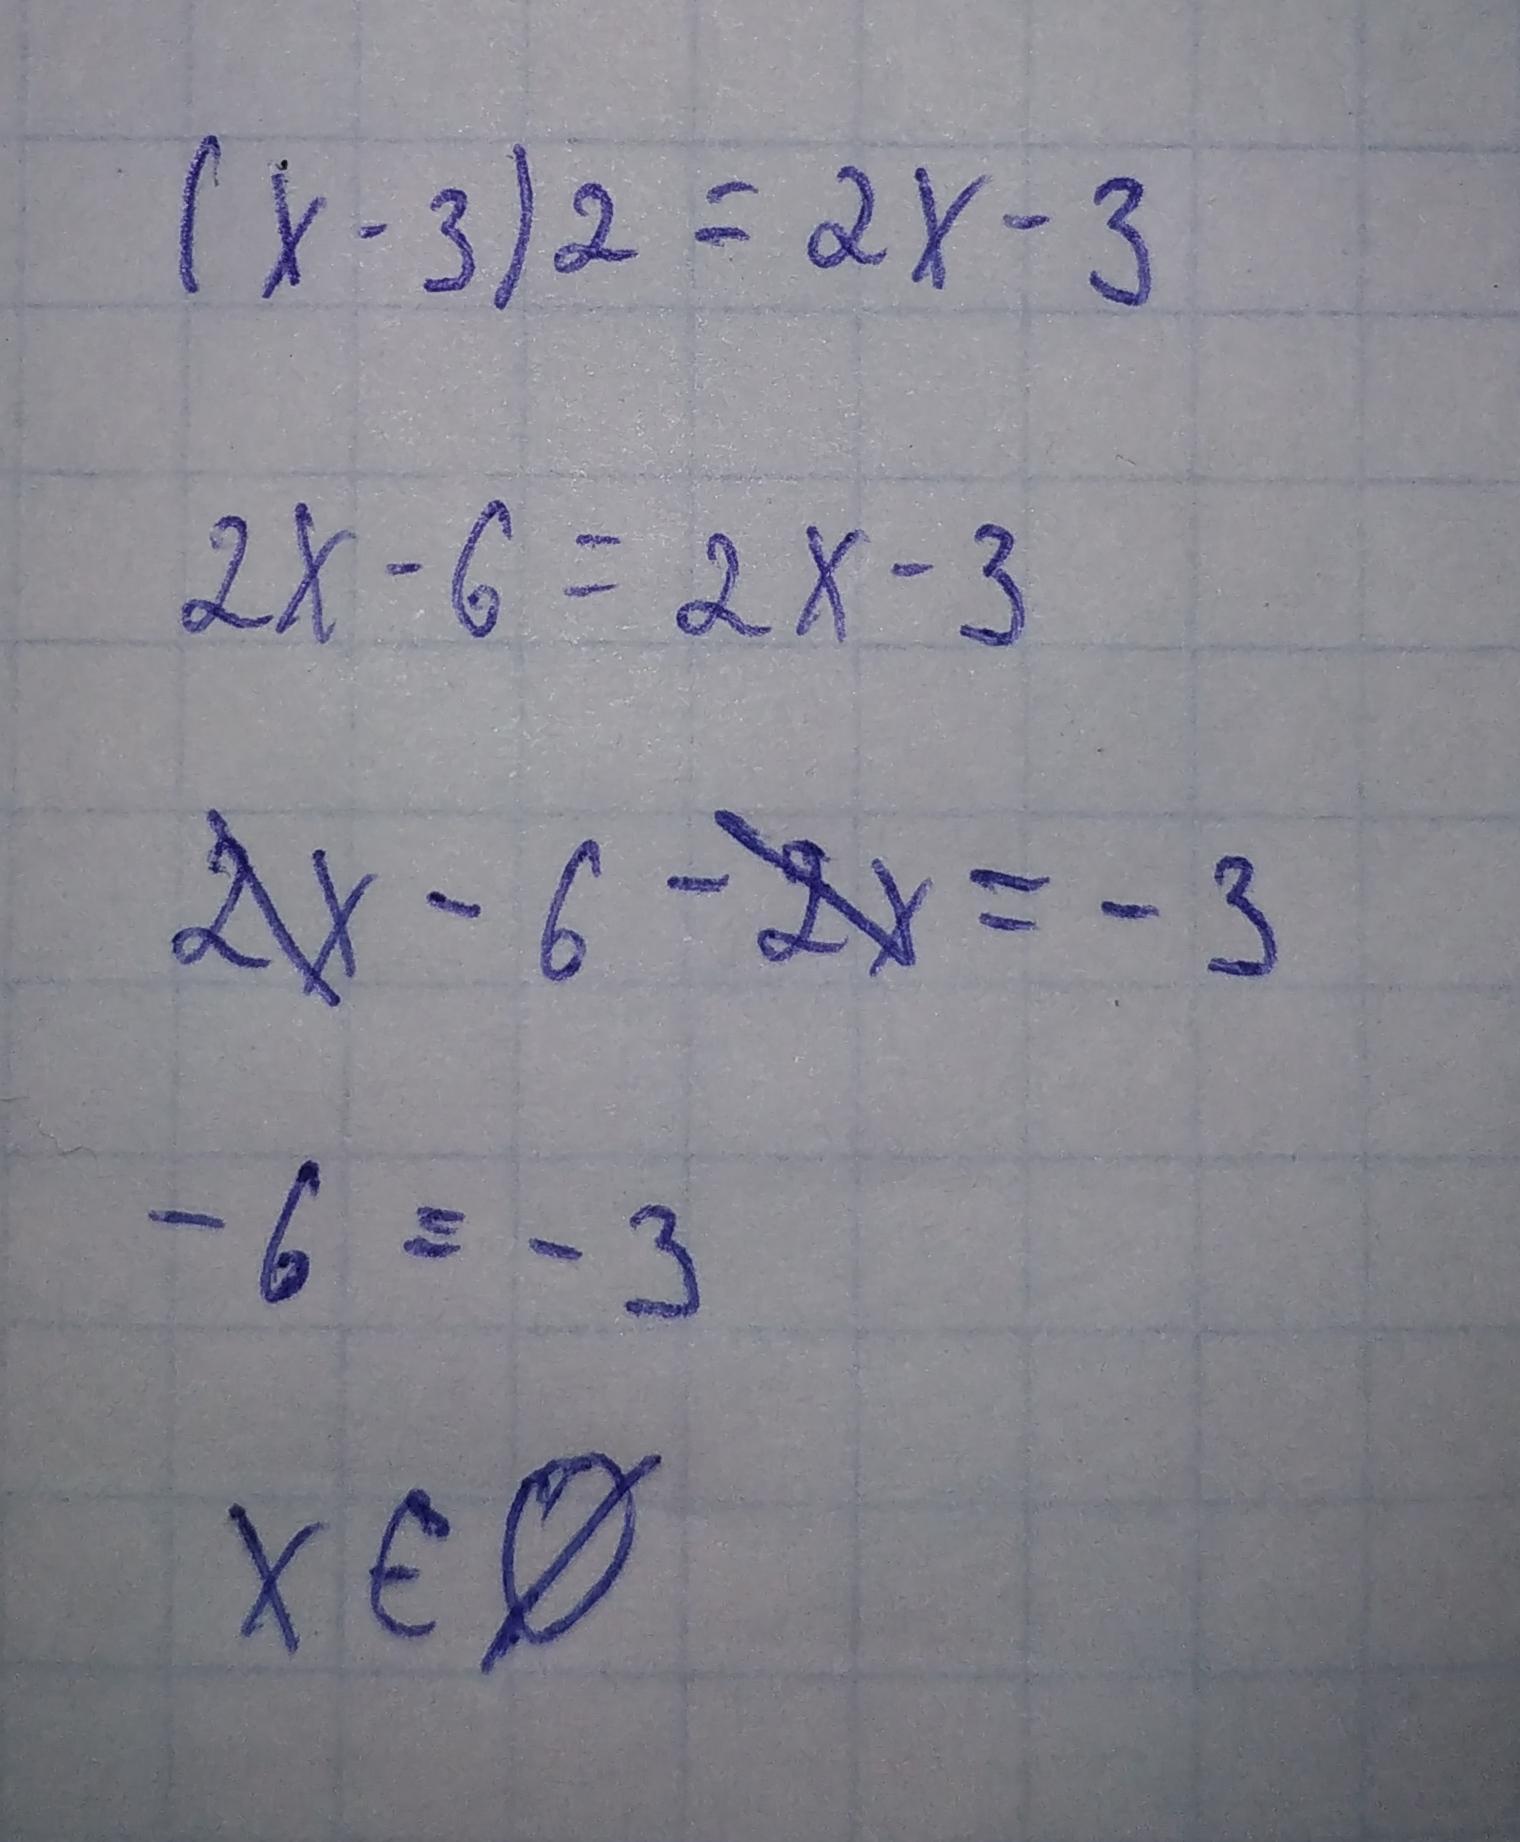 (x-3)2 = 2x-3
2x-6 = 2x-3
2x-6-2x = -3
-6 = -3
x ∈ ∅